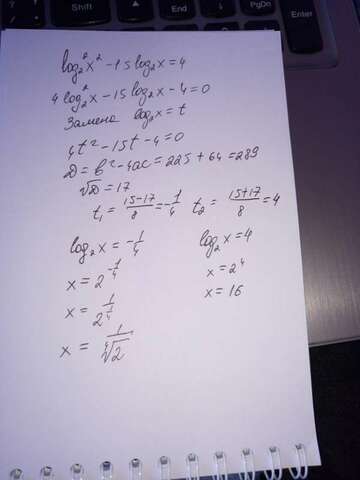 Shift
PgDn
End
log₂² x² - 15 log₂ x = 4
4 log₂² x - 15 log₂ x - 4 = 0
Замена log₂ x = t
4t² - 15t - 4 = 0
D = b² - 4ac = 225 + 64 = 289
√D = 17
t₁ = (15-17)/8 = -1/4 t₂ = (15+17)/8 = 4
log₂ x = -1/4
x = 2^(-1/4)
x = 1/2^(1/4)
x = 1/⁴√2
log₂ x = 4
x = 2⁴
x = 16